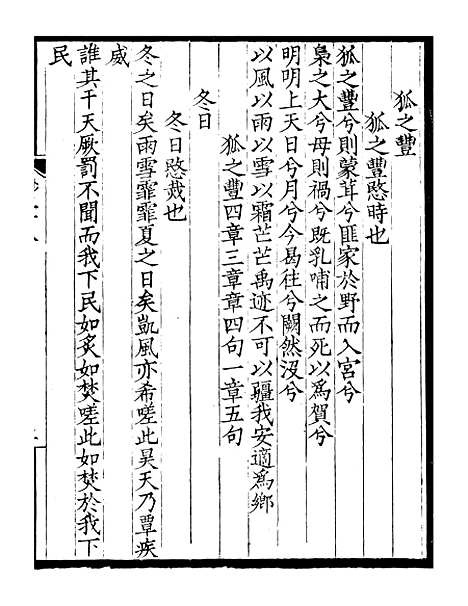 狐之豐
狐之豐愍時也
狐之豐兮則蒙茸兮匪家於野而入宮兮
梟之大兮母則禍兮既乳哺之而死以為賀兮
明明上天日兮月兮今曷往兮闕然沒兮
以風以雨以雪以霜芒芒禹迹不可以疆我安適為鄉
狐之豐四章三章章四句一章五句
冬日
冬日愍烖也
冬之日矣雨雪霏霏夏之日矣凱風亦希嗟此昊天乃覃疾
威
誰其干天厥罰不聞而我下民如炙如焚嗟此如焚於我下
民